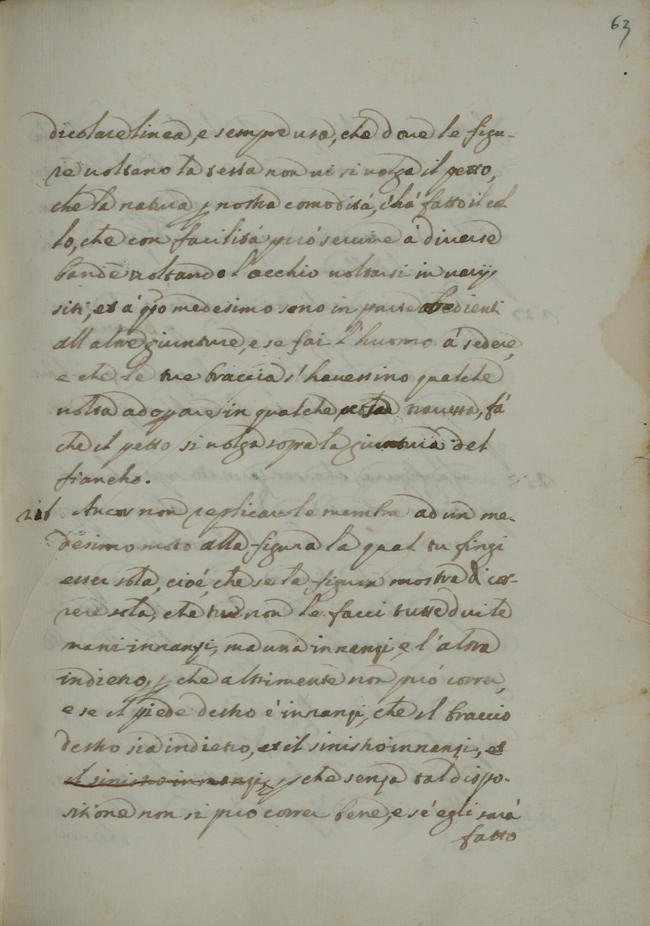 63
dicolare linea, e sempre usa, che dove le figu-
re voltano la testa non vi si volga il petto,
che la natura p nostra comodità, c'hà fatto il col
lo, che con facilità può servire à diverse
bande voltando l'occhio voltarsi in varij
siti, et à q̃sto medesimo sono in parte obedienti
all'altre giunture, e se fai l'huomo à sedere,
e che le sue braccia s'havessino qualche
volta adoprare in qualche traversa, fà
che il petto si volga sopra la giuntura del
fiancho.
Ancor non replicare le membra ad un me-
desimo moto alla figura la qual tu fingi
esser sola, cioè, che se la figura mostra di cor-
rere sola, che tu non le facci tutte due le
mani innanzi, ma una innanzi, e l'altra
indietro, p che altrimente non può correr,
e se il piede destro è innanzi, che il braccio
destro sia indietro, et il sinistro innanzi, et
il sinistro innanzi, p che senza tal dispo-
sitione non si può correr bene, e s'egli sarà
fatto